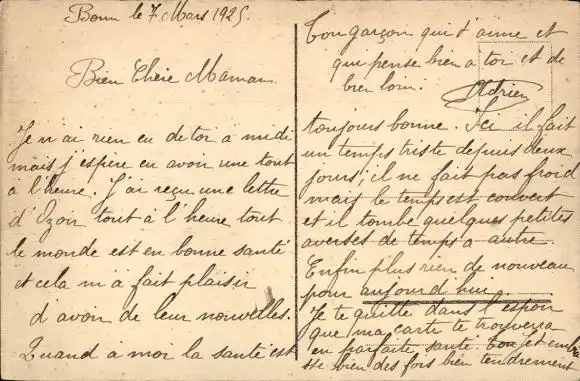 Bonn le 7 Mars 1925
Bien Chère Maman
Je n ai rien eu de toi a midi
mais j'espère en avoir une tout
a l'heure. J'ai reçu une lettre
d'Ozoir tout à l'heure tout
le monde est en bonne santé
et cela m'a fait plaisir
d avoir de leur nouvelles.
Quand à moi la santé est
toujours bonne. Ici il fait
un temps triste depuis deux
jours; il ne fait pas froid
mais le temps est couvert
et il tombe quelques petites
averses de temps a autre
Enfin plus rien de nouveau
pour aujourd hui.
Je te quitte dans l'espoir
que ma carte te trouvera
en parfaite santé. Ton
bien des fois bien tendrement
Ton garçon qui t'aime et
qui pense bien a toi et de
bien loin.
Adrien